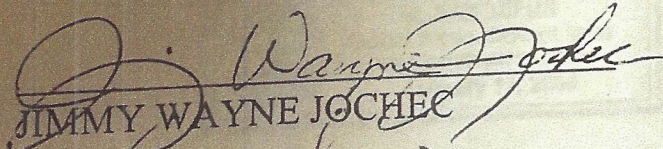 Jimmy Wayne Jochec
JIMMY WAYNE JOCHEC